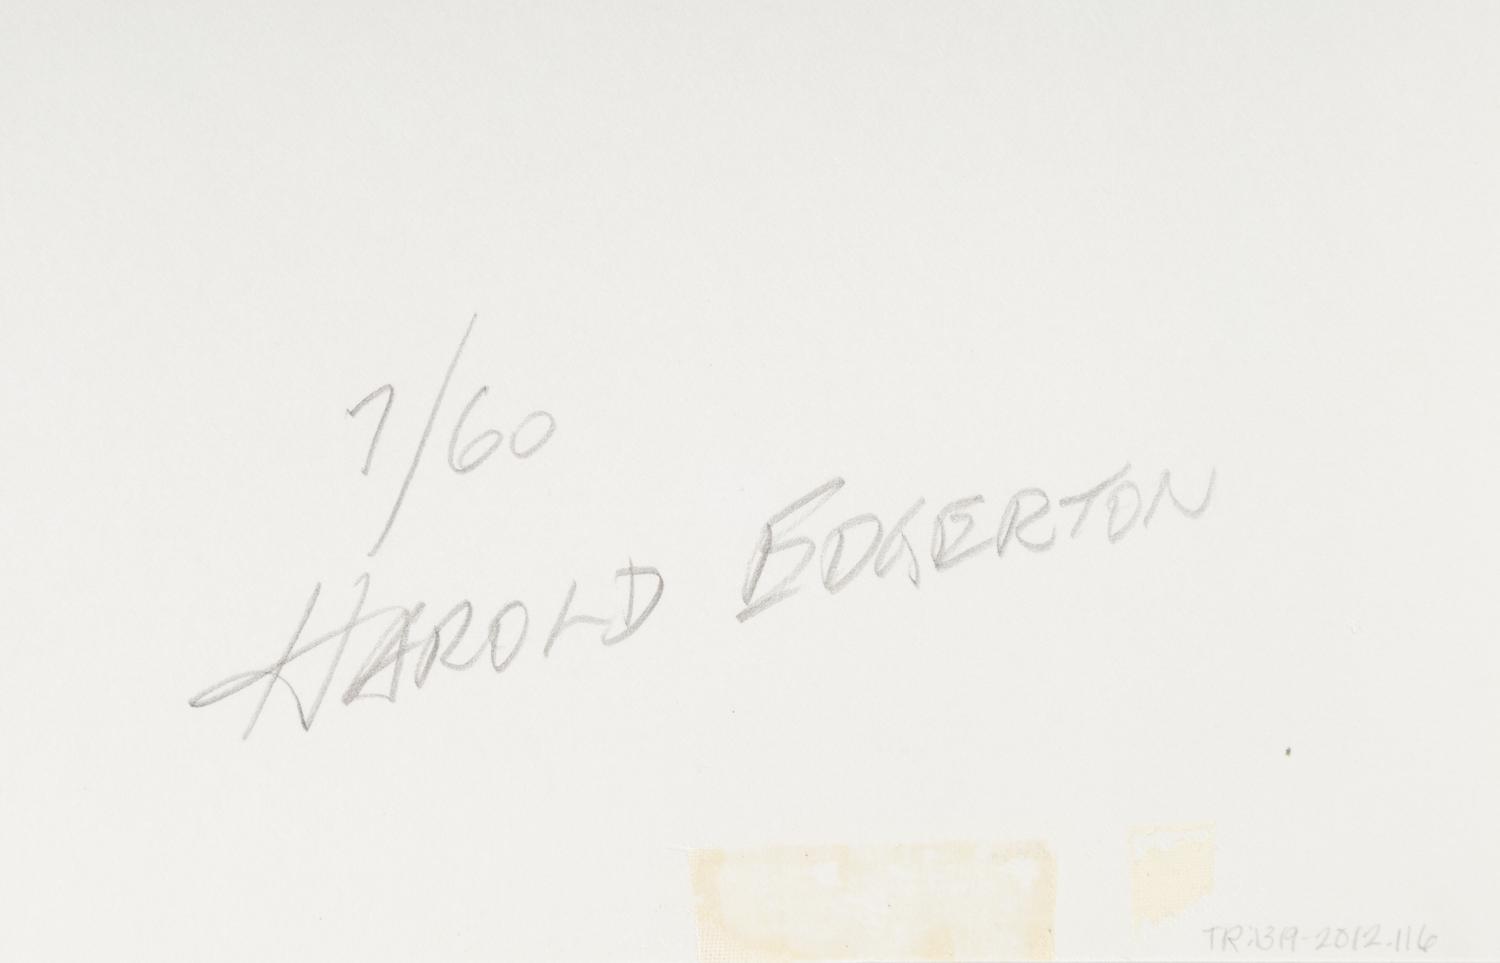 7/60
HAROLD EDGERTON
TR:1319-2012.116